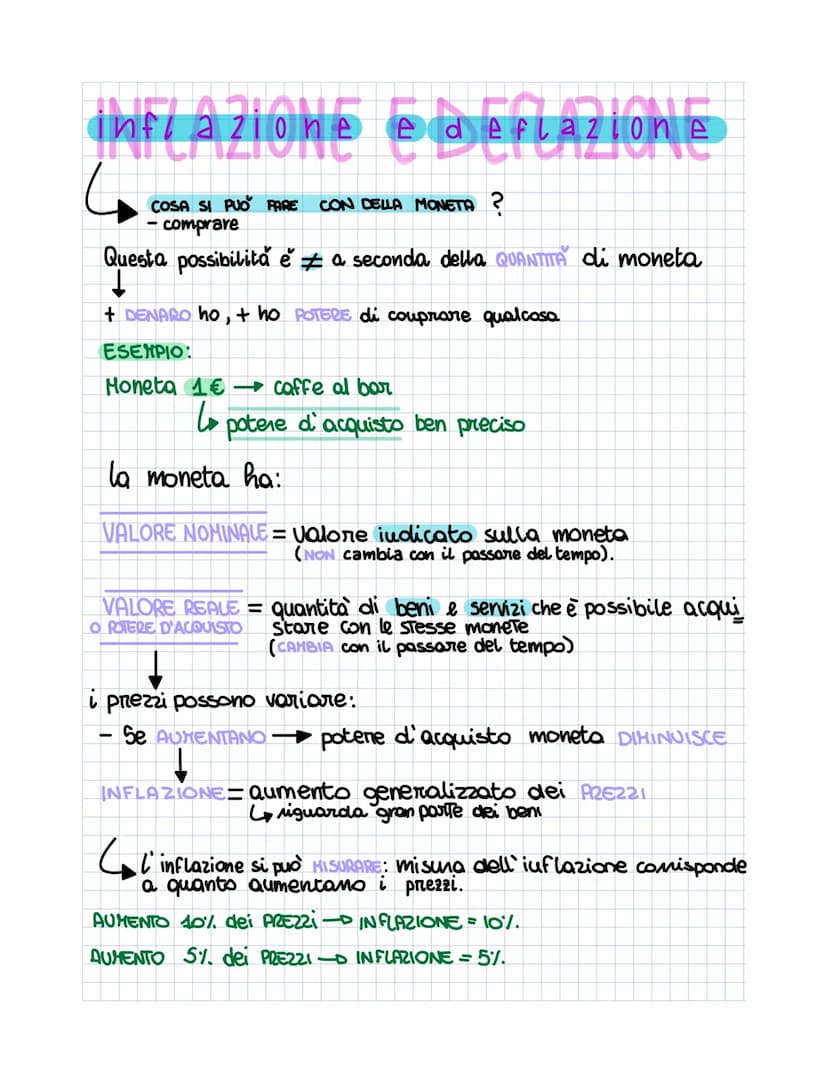 INFLAZIONE E DEFLAZIONE
inflazione e deflazione
COSA SI PUÒ FARE CON DELLA MONETA ?
- comprare
Questa possibilità è ≠ a seconda della QUANTITÀ di moneta
+ DENARO ho, + ho POTERE di comprare qualcosa
ESEMPIO:
Moneta 1€ → caffe al bar
↳ potere d'acquisto ben preciso
la moneta ha:
VALORE NOMINALE = valore indicato sulla moneta
(NON cambia con il passare del tempo).
VALORE REALE = quantità di beni e servizi che è possibile acqui
O POTERE D'ACQUISTO stare con le stesse monete
(CAMBIA con il passare del tempo)
i prezzi possono variare:
- Se AUMENTANO → potere d'acquisto moneta DIMINUISCE
INFLAZIONE = aumento generalizzato dei PREZZI
↳ riguarda gran parte dei beni
↳ l'inflazione si può MISURARE: misura dell'inflazione corrisponde
a quanto aumentano i prezzi.
AUMENTO 10% dei PREZZI → INFLAZIONE = 10%.
AUMENTO 5% dei PREZZI → INFLAZIONE = 5%.